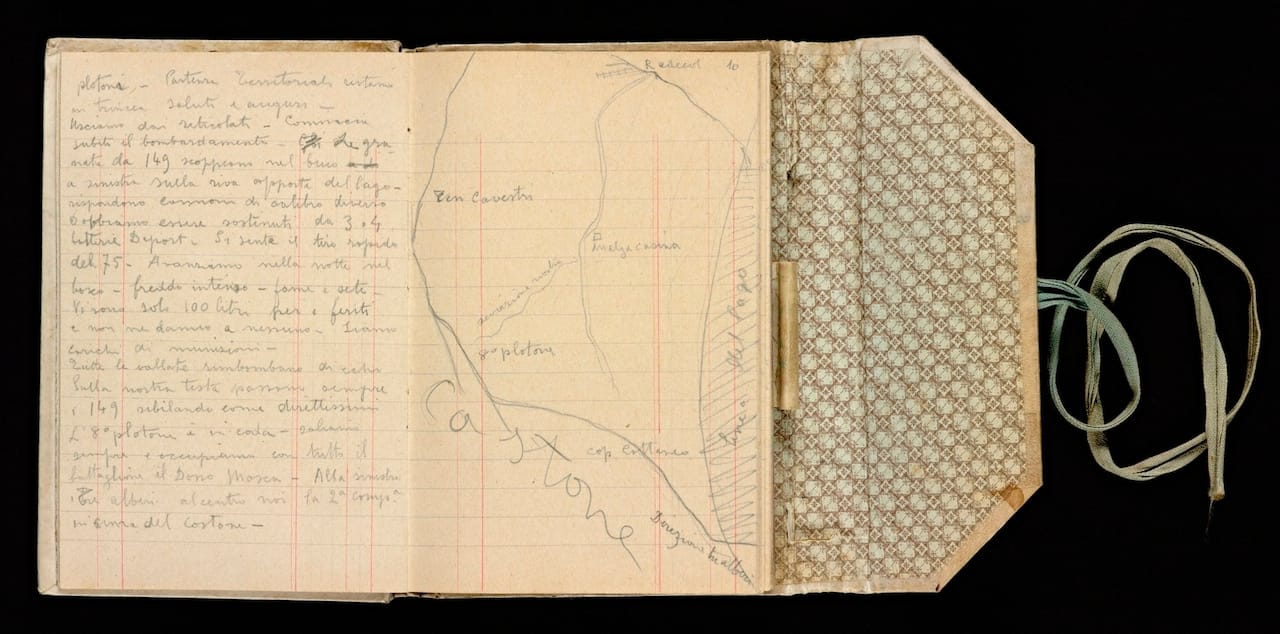 plotoni, - Partenza Territoriali restano
in trincea saluti e auguri -
Usciamo dai reticolati - Comincia
subito il bombardamento - Le gra
nate da 149 scoppiano nel buio
a sinistra sulla riva opposta del lago -
rispondono cannoni di calibro diverso
Dobbiamo essere sostenuti da 3 o 4
batterie Deport - Si sente il tiro rapido
del 75 - Avanziamo nella notte nel
bosco - freddo intenso - fame e sete -
Vi sono solo 100 litri per i feriti
e non ne danno a nessuno - Siamo
carichi di munizioni -
Tutte le vallate rimbombano di echi
Sulla nostra testa passano sempre
i 149 sibilando come direttissimi
L'8° plotone è in coda - saliamo
sempre e occupiamo con tutto il
battaglione il Dosso Mosca - Alla sinistra
Tre alberi al centro noi la 2ª compª
in cima del Costone -
10
Redecol
Zen Cavestri
Malga casina
8° plotone
linea del lago
Ca
stone
cop. Cottaneo
Direzione tre alberi